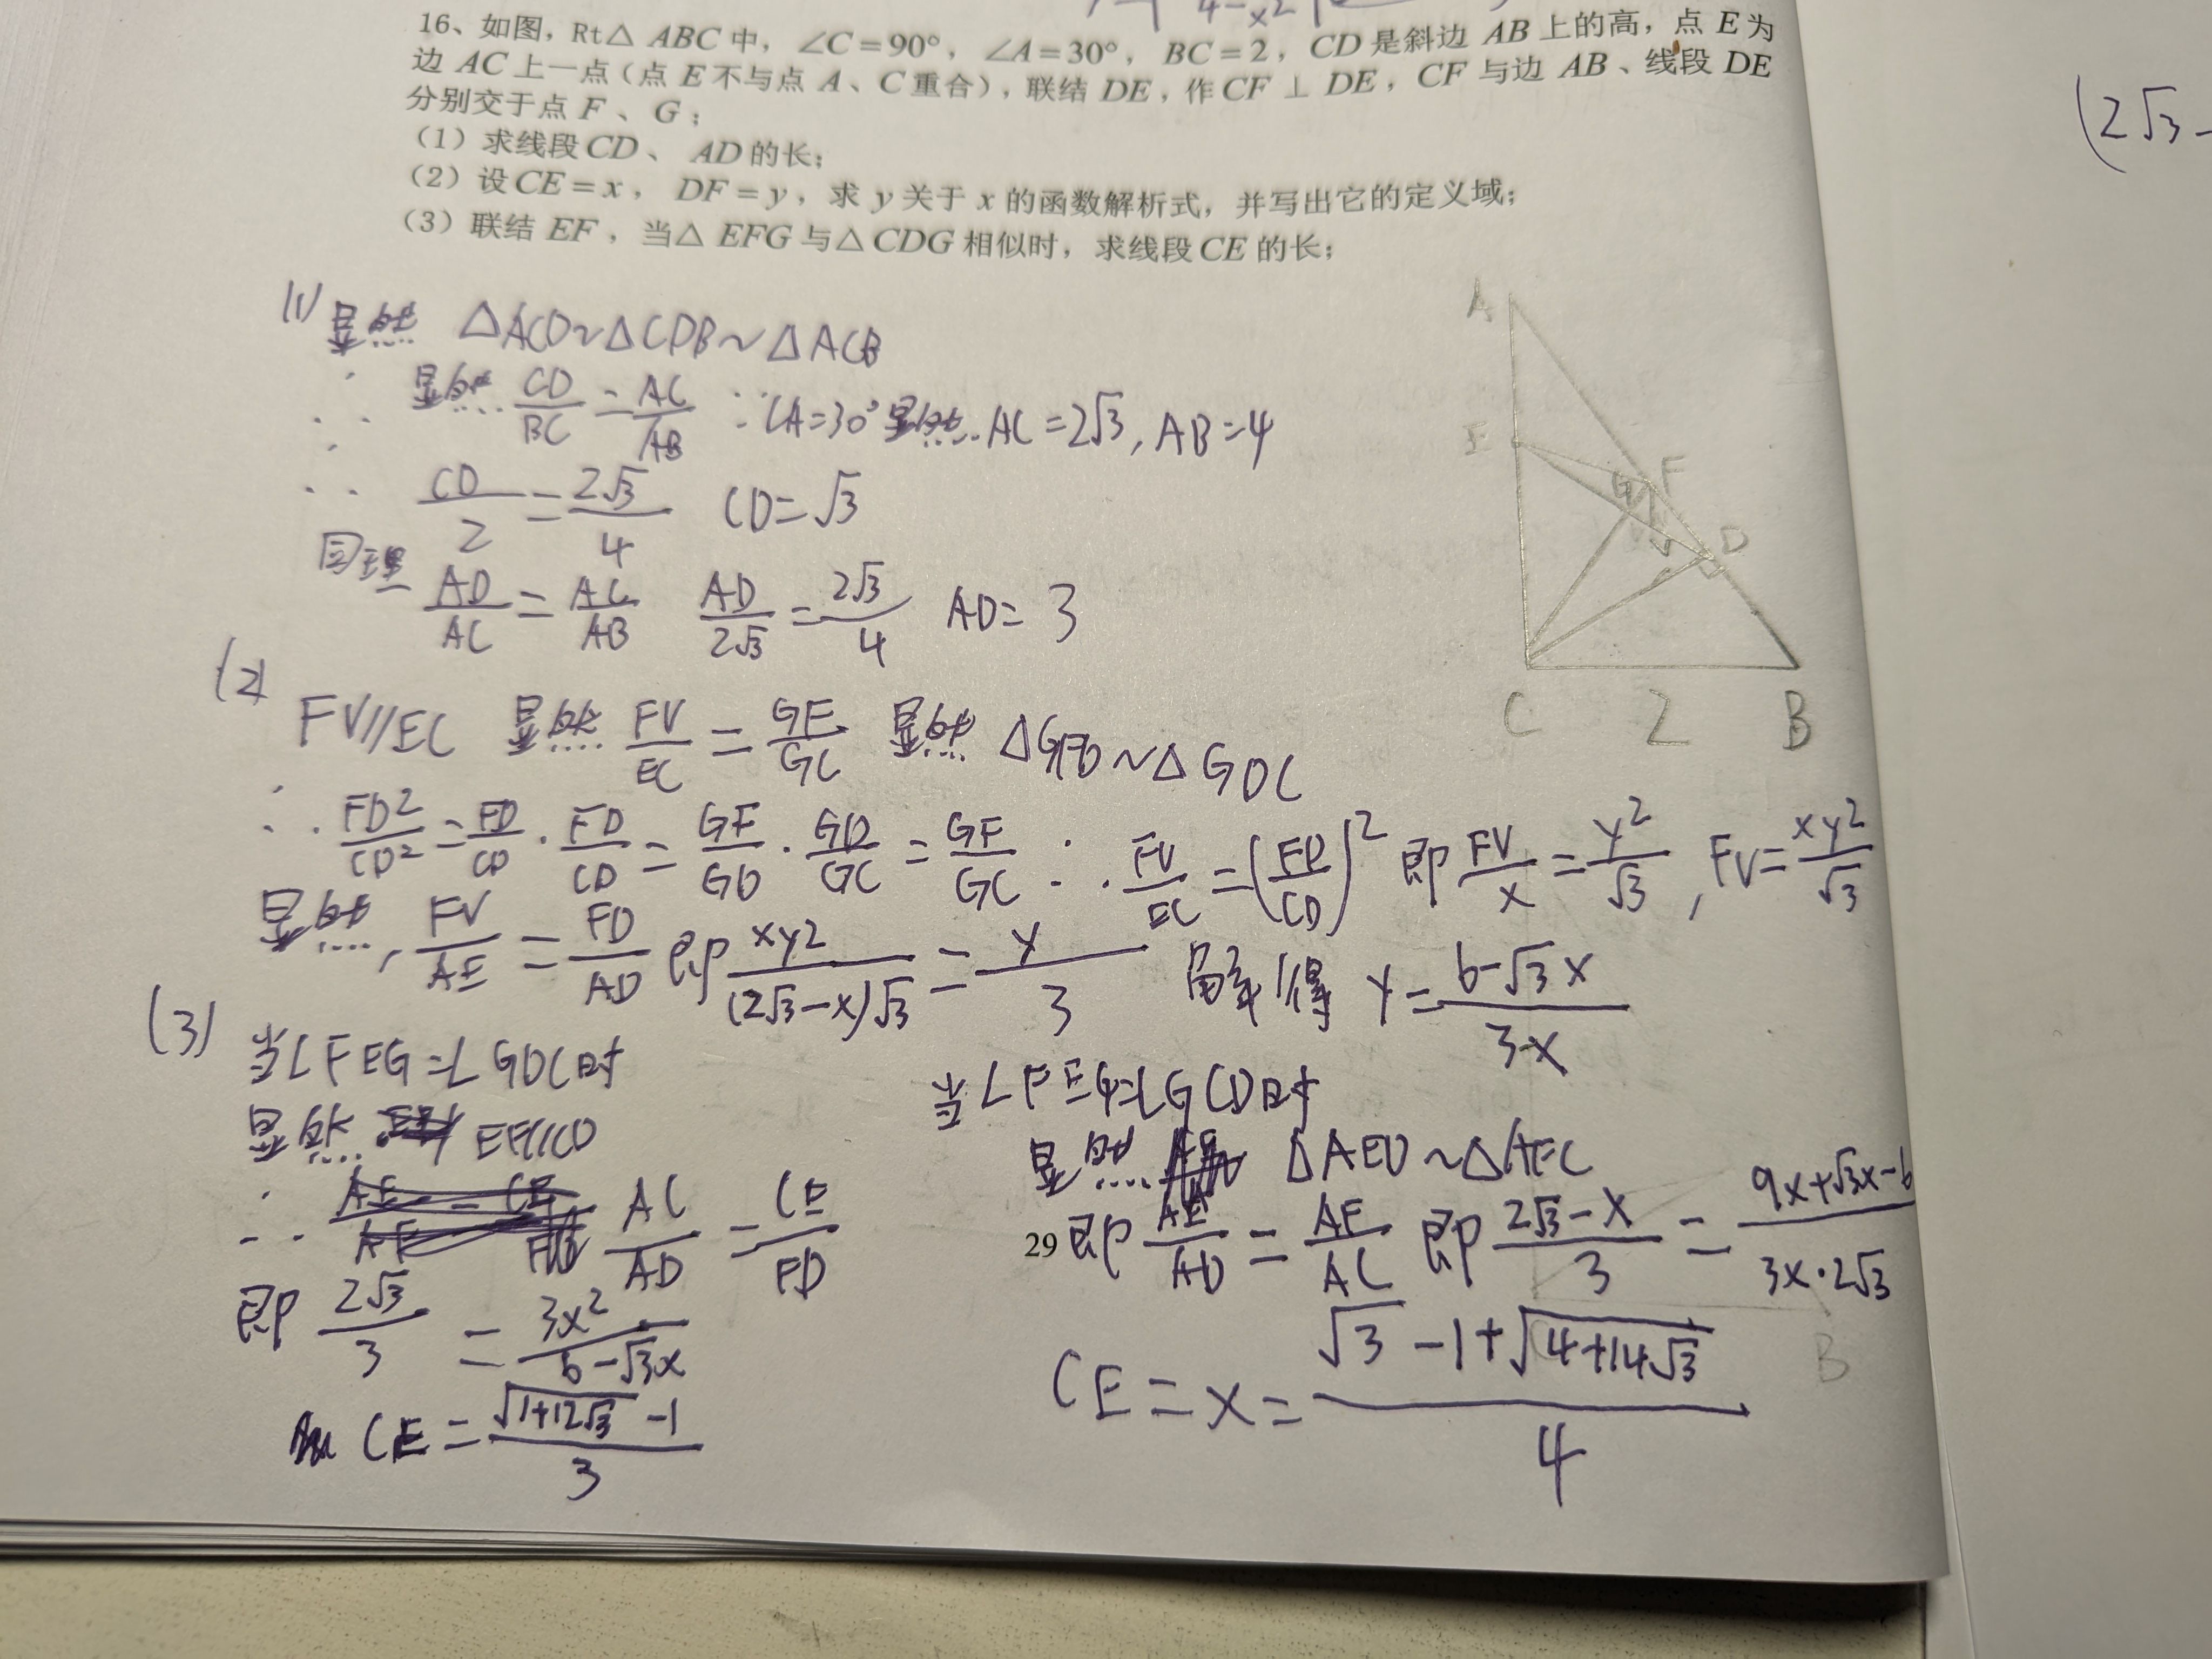 4-x²
16、如图，Rt△ ABC 中，∠C=90°，∠A=30°，BC=2，CD 是斜边 AB 上的高，点 E 为
边 AC 上一点（点 E 不与点 A、C 重合），联结 DE，作CF ⊥ DE，CF 与边 AB、线段 DE
分别交于点 F、G；
（1）求线段CD、 AD 的长；
（2）设CE=x，DF=y，求 y 关于 x 的函数解析式，并写出它的定义域；
（3）联结 EF，当△ EFG 与△ CDG 相似时，求线段CE 的长；
(2√3-
(1) 显然 △ACD∽△CDB∽△ACB
∴ 显然 CD/BC = AC/AB ∵∠A=30° 显然 AC=2√3, AB=4
∴ CD/2 = 2√3/4 CD=√3
同理 AD/AC = AC/AB AD/2√3 = 2√3/4 AD=3
A
E
F
G
D
C 2 B
(2)
FV//EC 显然 FV/EC = GF/GC 显然 △GFD∽△GDC
∴ FD²/CD² = FD/CD · FD/CD = GF/GD · GD/GC = GF/GC ∴ FV/EC = (FD/CD)² 即 FV/x = y²/√3, FV = xy²/√3
显然, FV/AE = FD/AD 即 xy²/(2√3-x)√3 = y/3 解得 y = 6-√3x/3x
(3) 当∠FEG=∠GDC时
显然 EF//CD
∴ AC/AD = CE/FD
即 2√3/3 = 3x²/6-√3x
CE = √(1+12√3) -1/3
当∠FEG=∠GCD时
显然 △AED∽△AFC
29
即 AE/AD = AF/AC 即 2√3-x/3 = 9x+√3x-6/3x·2√3
CE=x= √3-1+√(4+14√3)/4
B